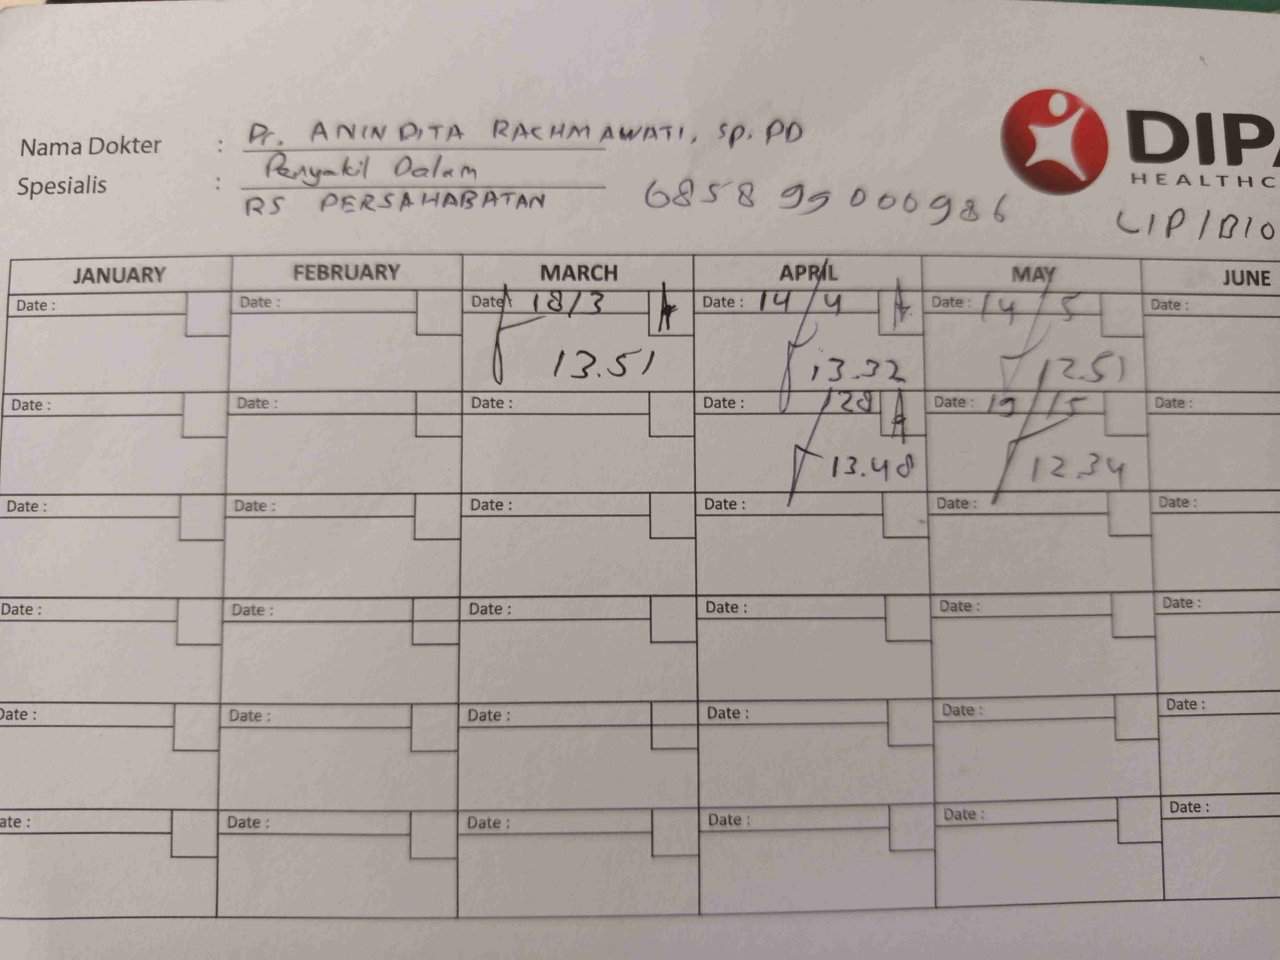 Nama Dokter : Dr. ANINDITA RACHMAWATI, SP. PD
Spesialis : Penyakit Dalam
RS PERSAHABATAN 6858 99000986
DIPA
HEALTHC
LIP/BIO
JANUARY FEBRUARY MARCH APRIL MAY JUNE
Date : Date : Date 18/3 Date : 14/4 Date : 14/5 Date :
13.51 13.32 12.51
Date : Date : Date : Date : /28 Date : 19/5 Date :
13.48 12.34
Date : Date : Date : Date : Date : Date :
Date : Date : Date : Date : Date : Date :
Date : Date : Date : Date : Date : Date :
ate : Date : Date : Date : Date : Date :